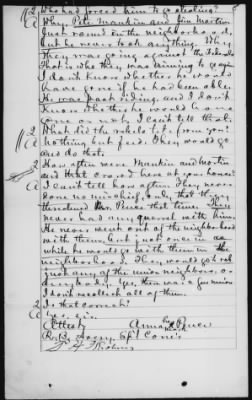 Q Who had forced him to go stealing?
A Why, Pete Mankin and Jim Martin
Just round in the neighborhood,
but he never took anything. Why
they was going against the Federals
That is who they was aiming to go
I don't know whether he would
have gone if he had been able.
He was just riding, and I don't
know whether he would have
gone or not, I can't tell that.
Q What did the rebels take from you?
A Nothing but feed. They would go
and do that.
Q How often were Mankin and Martin
and that crowd here at your house?
A I can't tell how often. They never
done no mischief, only that they
threatened Mr Puce that time. They
never had any quarrel with him.
He never went out of the neighborhood
with them, but just once in a
while he would go with them in the
neighborhood. They would go to rob
just any of the union neighbors, or
anybody. Yes, there was a few union
I don't recollect all of them.
Q Is that correct?
A Yes, sir.
Attest Anna her mark
R. B. Spl Com'r.